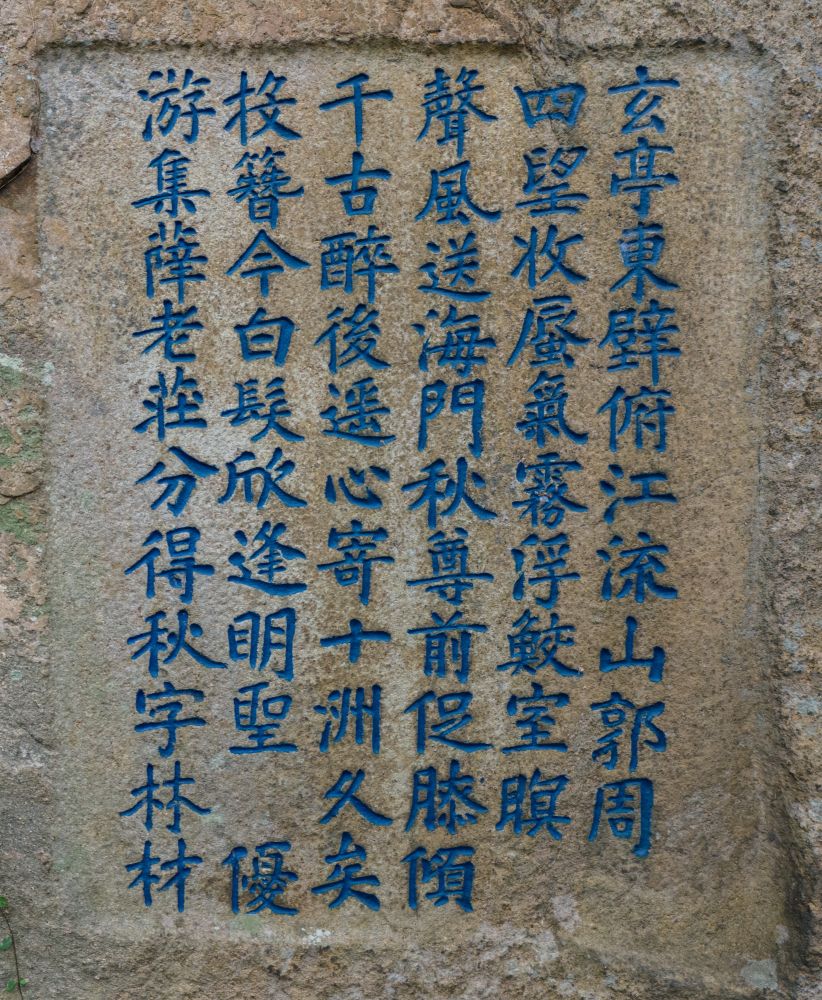 玄亭東壁俯江流山郭周
四望收蜃氣霧浮鮫室暝
聲風送海門秋尊前促膝傾
千古醉後遥心寄十洲久矣
投簪今白髮欣逢明聖 優
游集薛老莊分得秋字林材